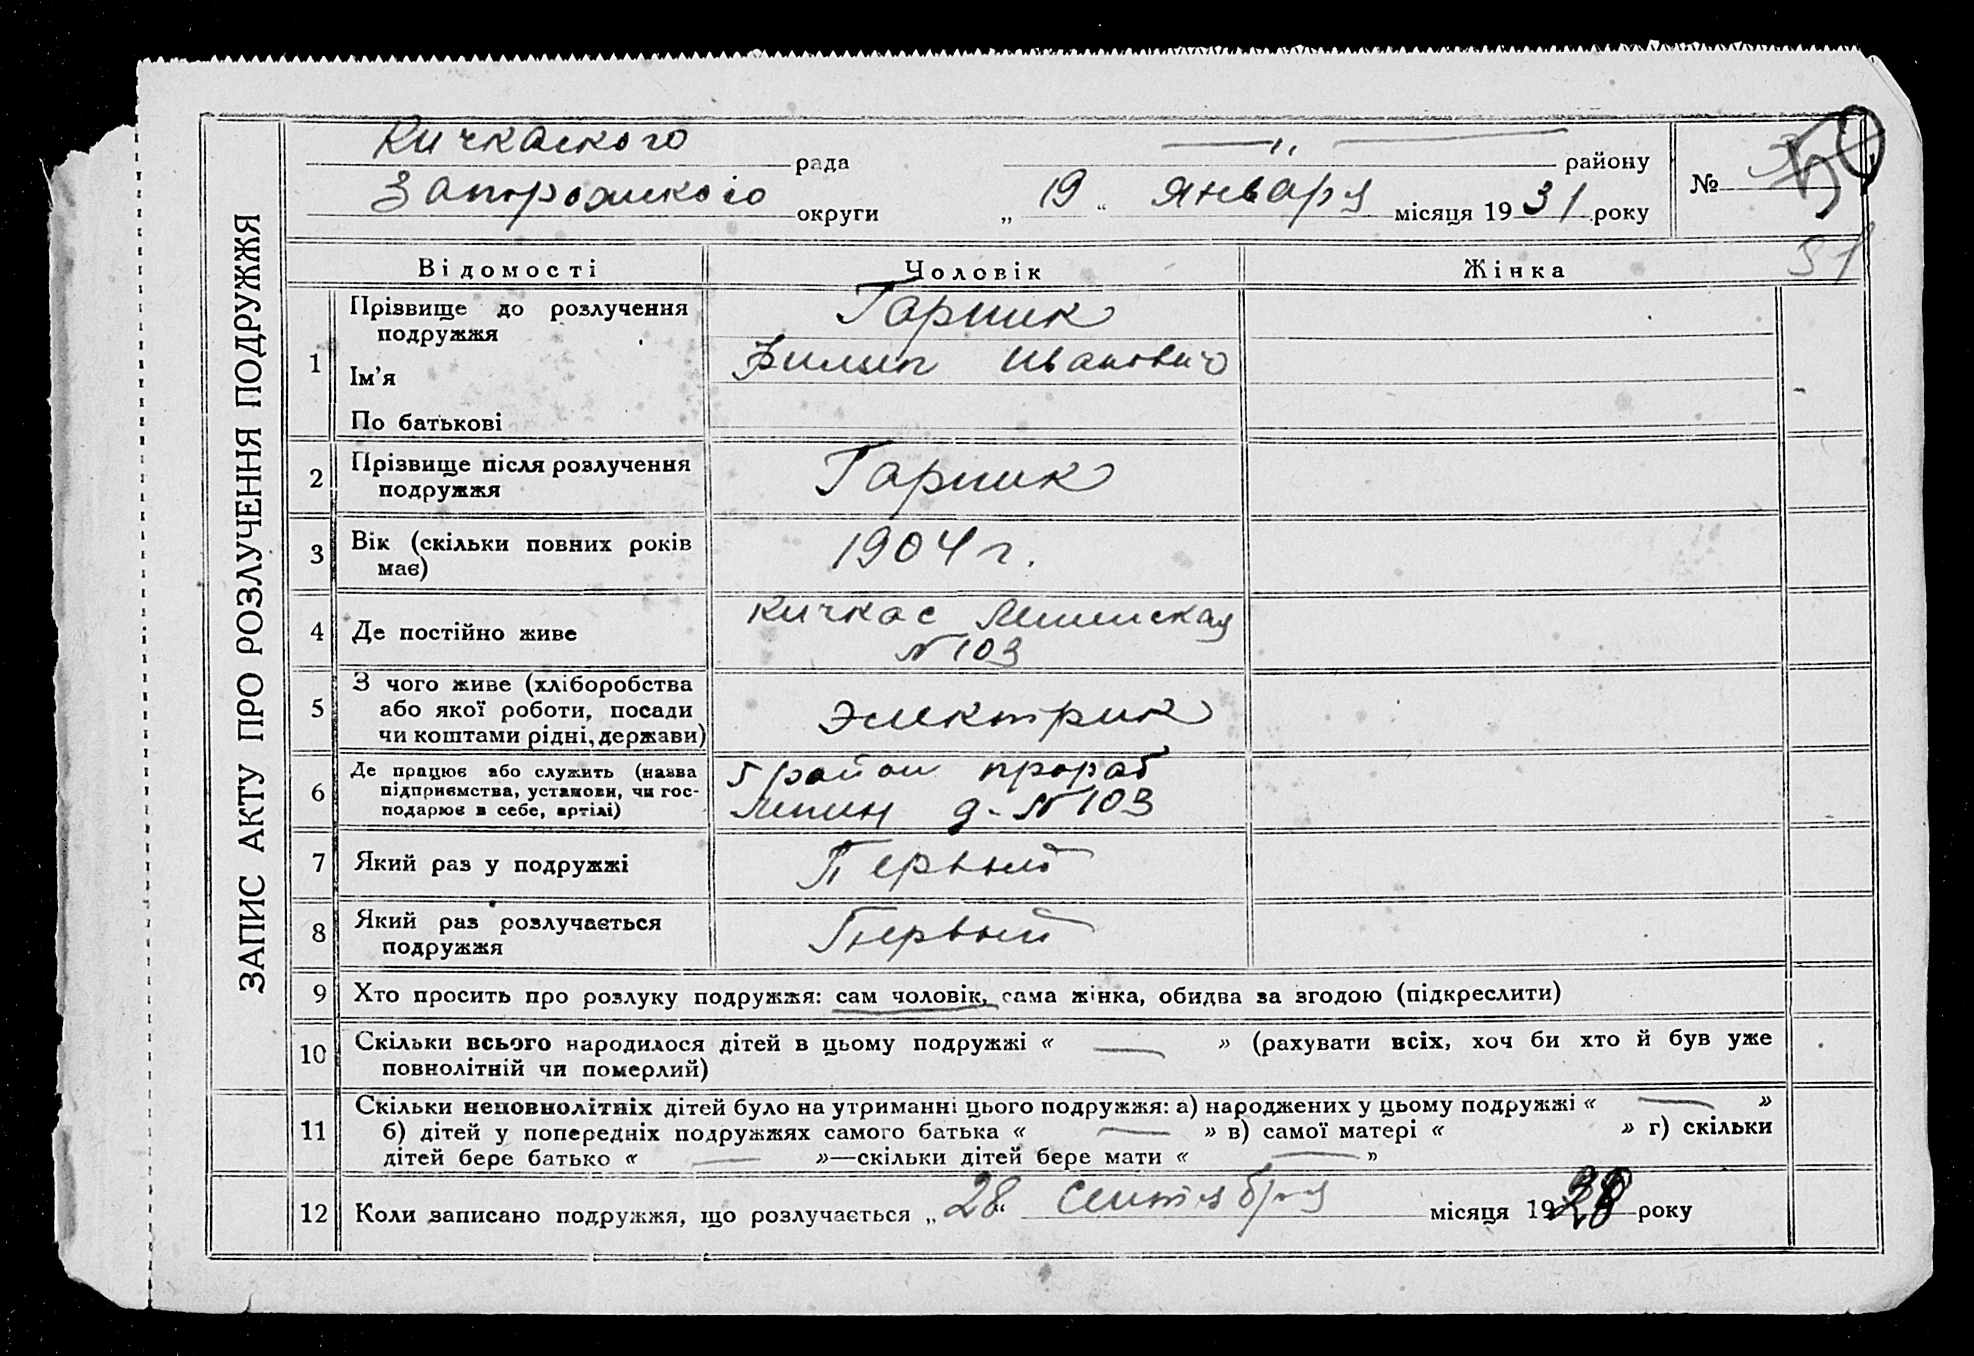 ЗАПИС АКТУ ПРО РОЗЛУЧЕННЯ ПОДРУЖЖЯ
Кичкаского рада „ району
Запорожского округи „ 19 “ Января місяця 1931 року
№ 50
51
Відомості Чоловік Жінка
1 Прізвище до розлучення подружжя Гарник
Ім’я Филип Иванович
По батькові
2 Прізвище після розлучення подружжя Гарник
3 Вік (скільки повних років має) 1904 г.
4 Де постійно живе Кичкас Ленинская
№ 103
5 З чого живе (хліборобства або якої роботи, посади чи коштами рідні, держави) Электрик
6 Де працює або служить (назва підприємства, установи, чи господарює в себе, артілі) 5 район прораб
Ленин д. № 103
7 Який раз у подружжі Первый
8 Який раз розлучається подружжя Первый
9 Хто просить про розлуку подружжя: сам чоловік, сама жінка, обидва за згодою (підкреслити)
10 Скільки всього народилося дітей в цьому подружжі « — » (рахувати всіх, хоч би хто й був уже
повнолітній чи померлий)
11 Скільки неповнолітніх дітей було на утриманні цього подружжя: а) народжених у цьому подружжі « — »
б) дітей у попередніх подружжях самого батька « — » в) самої матері « » г) скільки
дітей бере батько « — »—скільки дітей бере мати « — »
12 Коли записано подружжя, що розлучається „ 28 “ Сентября місяця 19 року